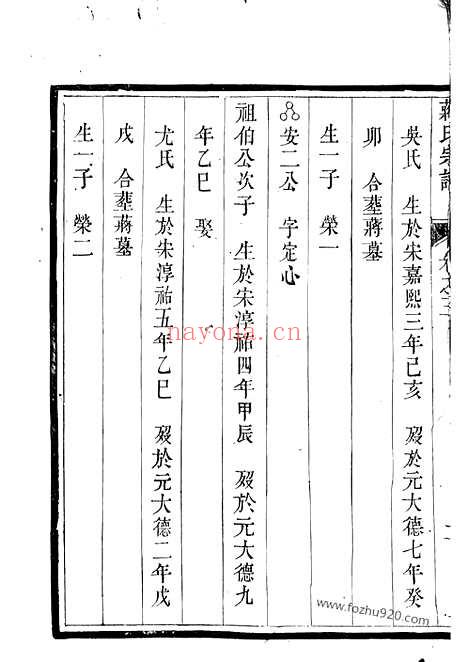 蔣氏宗譜
卷之三
吳氏 生於宋嘉熙三年己亥 歿於元大德七年癸
卯 合塟蔣墓
生一子 榮一
安二公 字定心
祖伯公次子 生於宋淳祐四年甲辰 歿於元大德九
年乙巳 娶
尤氏 生於宋淳祐五年乙巳 歿於元大德二年戊
戌 合塟蔣墓
生一子 榮二
nayona.cn
www.fozhu920.com